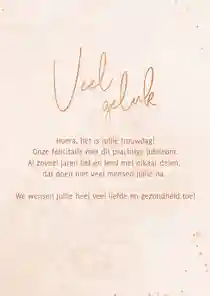 Veel
geluk
Hoera, het is jullie trouwdag!
Onze felicitatie met dit prachtige jubileum.
Al zoveel jaren lief en leed met elkaar delen,
dat doen niet veel mensen jullie na.
We wensen jullie heel veel liefde en gezondheid toe!